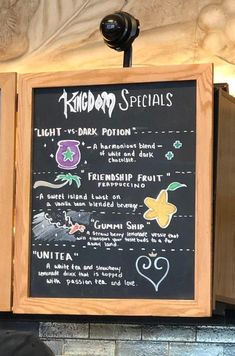 KINGDOM SPECIALS
"LIGHT -VS- DARK POTION"
- A harmonious blend -
of white and dark
chocolate.
FRIENDSHIP FRUIT
FRAPPUCCINO
- A sweet island twist on
a vanilla bean blended beverage.
"GUMMI SHIP"
- a strawberry lemonade that
will your taste buds to a far
away land.
"UNITEA"
A white tea and strawberry
lemonade drink that is topped
with passion tea and love.